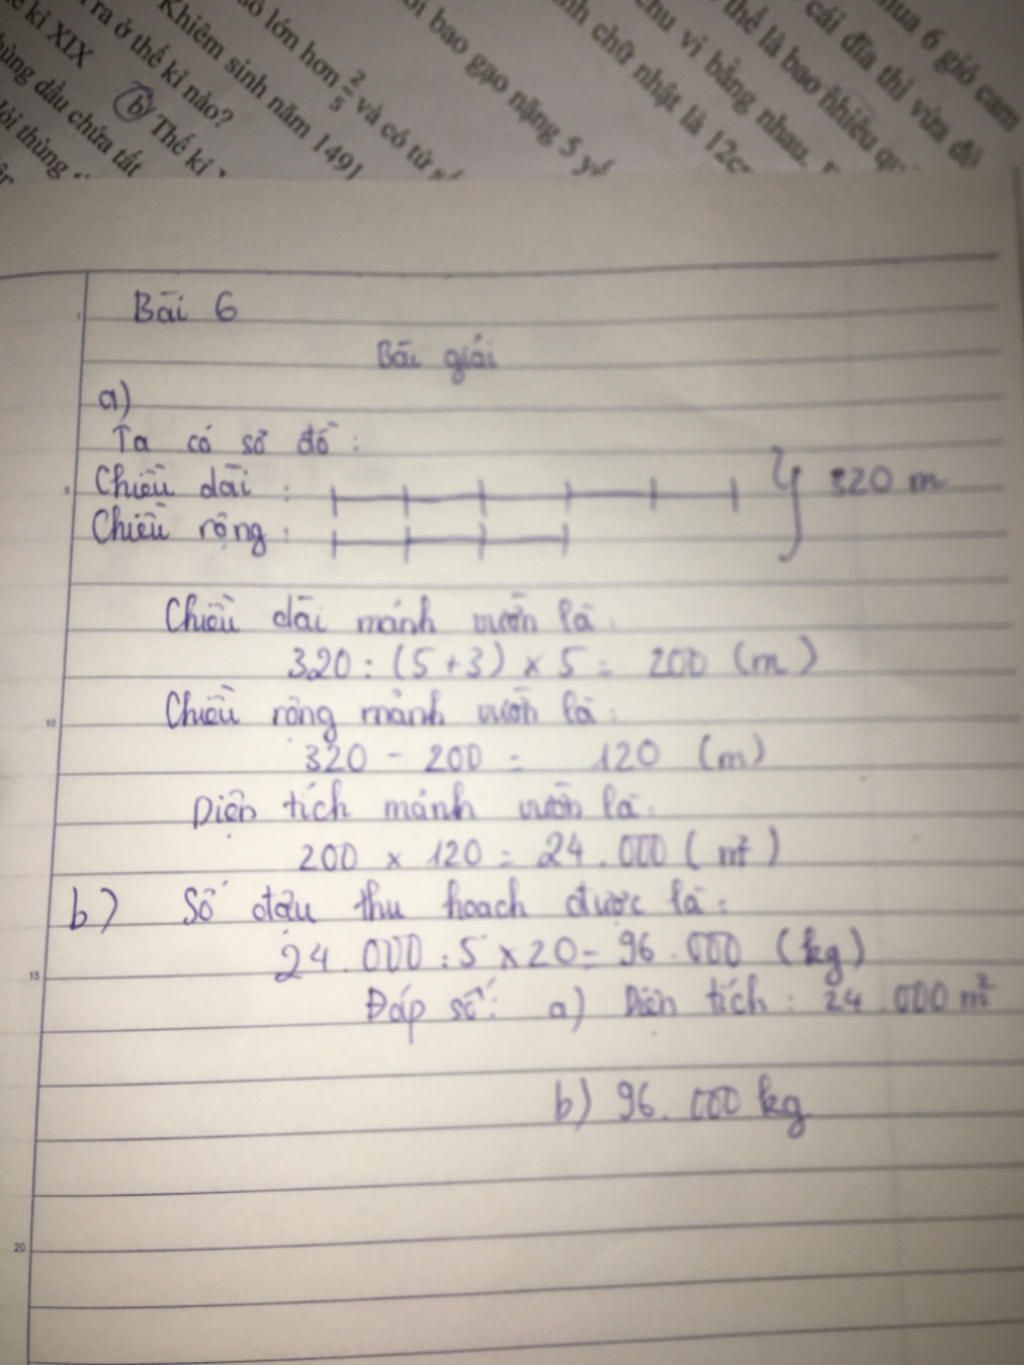 ế kỉ XIX
ra ở thế kỉ nào?
Khiêm sinh năm 1491
lớn hơn 2/5 và có tử số
bao gạo nặng 5 yế
nh chữ nhật là 12c
chu vi bằng nhau.
thế là bao nhiêu
cái đĩa thì vừa đủ
mua 6 giỏ cam
thùng dầu chứa tất
b) Thế kỉ
ỏi thùng
Bài 6
Bài giải
a)
Ta có sơ đồ:
Chiều dài: 320 m
Chiều rộng:
Chiều dài mảnh vườn là:
320 : (5+3) x 5 = 200 (m)
Chiều rộng mảnh vườn là:
320 - 200 = 120 (m)
Diện tích mảnh vườn là:
200 x 120 = 24.000 (m²)
b) Số đậu thu hoạch được là:
24.000 : 5 x 20 = 96.000 (kg)
Đáp số: a) Diện tích: 24.000 m²
b) 96.000 kg
5
10
15
20